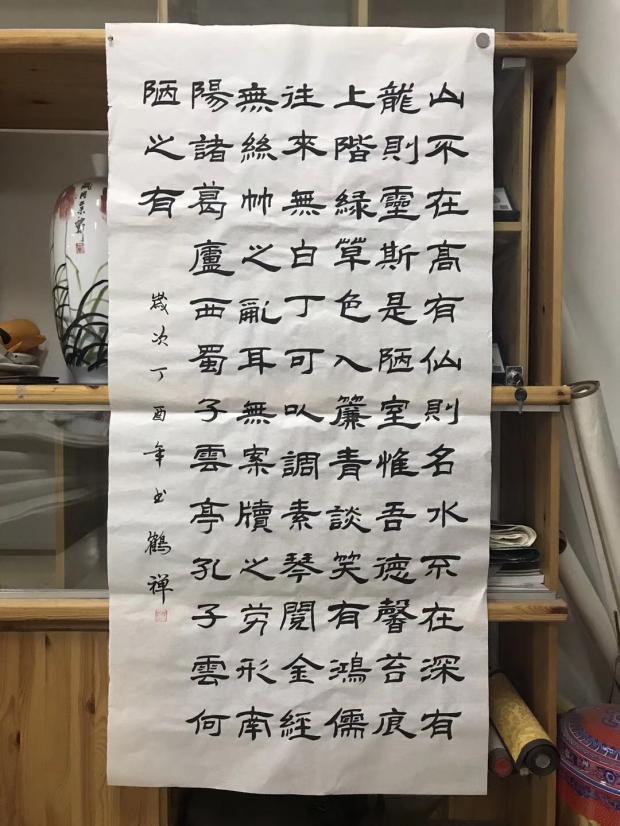 山不在高有仙則名水不在深有
龍則靈斯是陋室惟吾德馨苔痕
上階綠草色入簾青談笑有鴻儒
往來無白丁可以調素琴閱金經
無絲竹之亂耳無案牘之勞形南
陽諸葛廬西蜀子雲亭孔子雲何
陋之有
歲次丁酉年书鶴禪